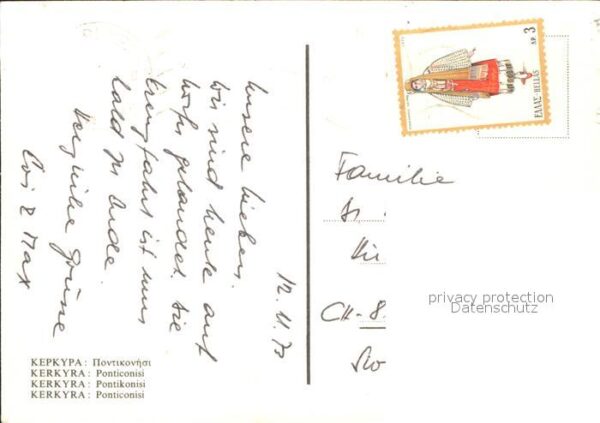 12.11.73
Unsere Lieben,
wir sind heute auf
gelandet. Die
fahrt ist nun
bald zu Ende.
Herzliche Grüsse
& Max
ΚΕΡΚΥΡΑ: Ποντικονήσι
KERKYRA: Ponticonisi
KERKYRA: Pontikonisi
KERKYRA: Ponticonisi
ΔΡ. 3
ΕΛΛΑΣ HELLAS
Familie
CH-8.
privacy protection
Datenschutz